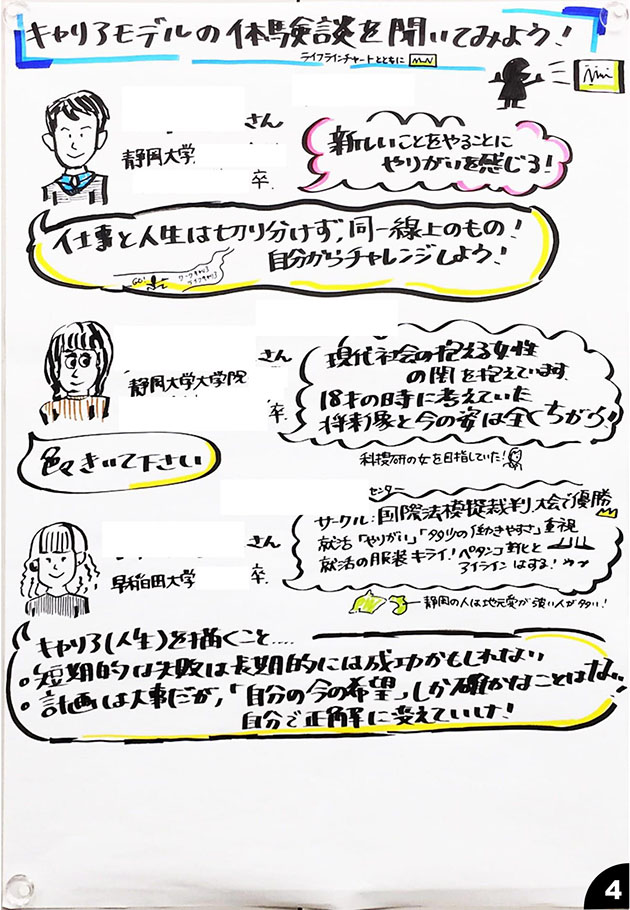 キャリアモデルの体験談を聞いてみよう!
ライフラインチャートとともに
さん
静岡大学
卒
新しいことをやることに
やりがいを感じる!
仕事と人生は切り分けず、同一線上のもの!
自分からチャレンジしよう!
GO!
ワークキャリア
ライフキャリア
さん
静岡大学大学院
卒
現代社会の抱える女性
の闇を抱えています
18才の時に考えていた
将来像と今の姿は全くちがう!
科捜研の女を目指していた!
色々きいて下さい
さん
早稲田大学
卒
センター
サークル:国際法模擬裁判大会で優勝
就活「やりがい」「女性の働きやすさ」重視
就活の服装キライ!ペタンコ靴と
アイラインはする!
静岡の人は地元愛が強い人が多い!
キャリア(人生)を描くこと....
・短期的な失敗は長期的には成功かもしれない
・計画は大事だが、「自分の今の希望」しか確かなことはない!
自分で正解に変えていけ!
4